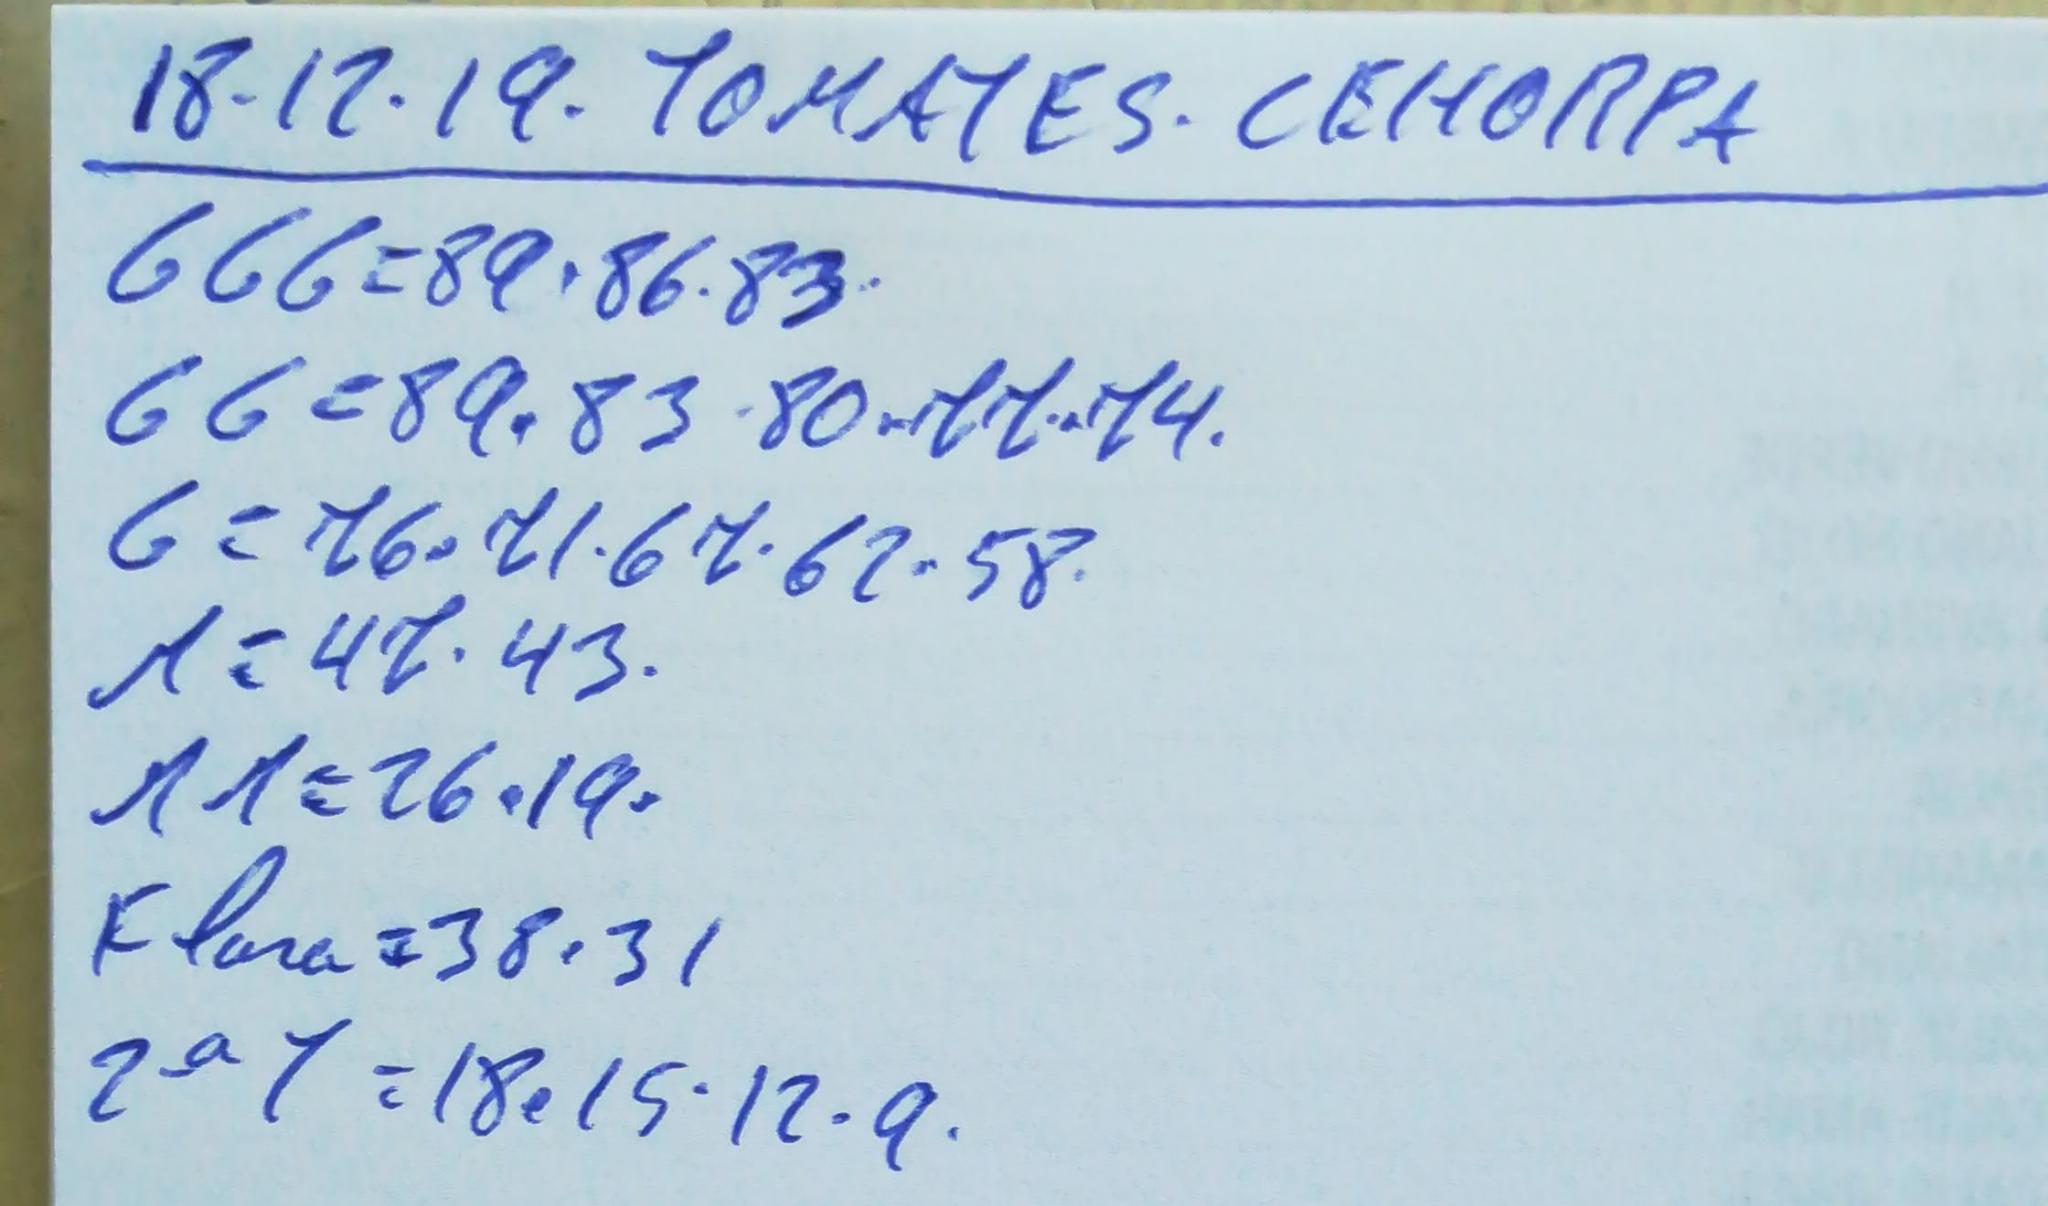 18.12.19. TOMATES. CEHORPA
GGG=89.86.83.
GG=89.83.80.77.74.
G=76.71.67.62.58.
M=47.43.
MM=26.19.
Flora=38.31
2ª T=18.15.12.9.